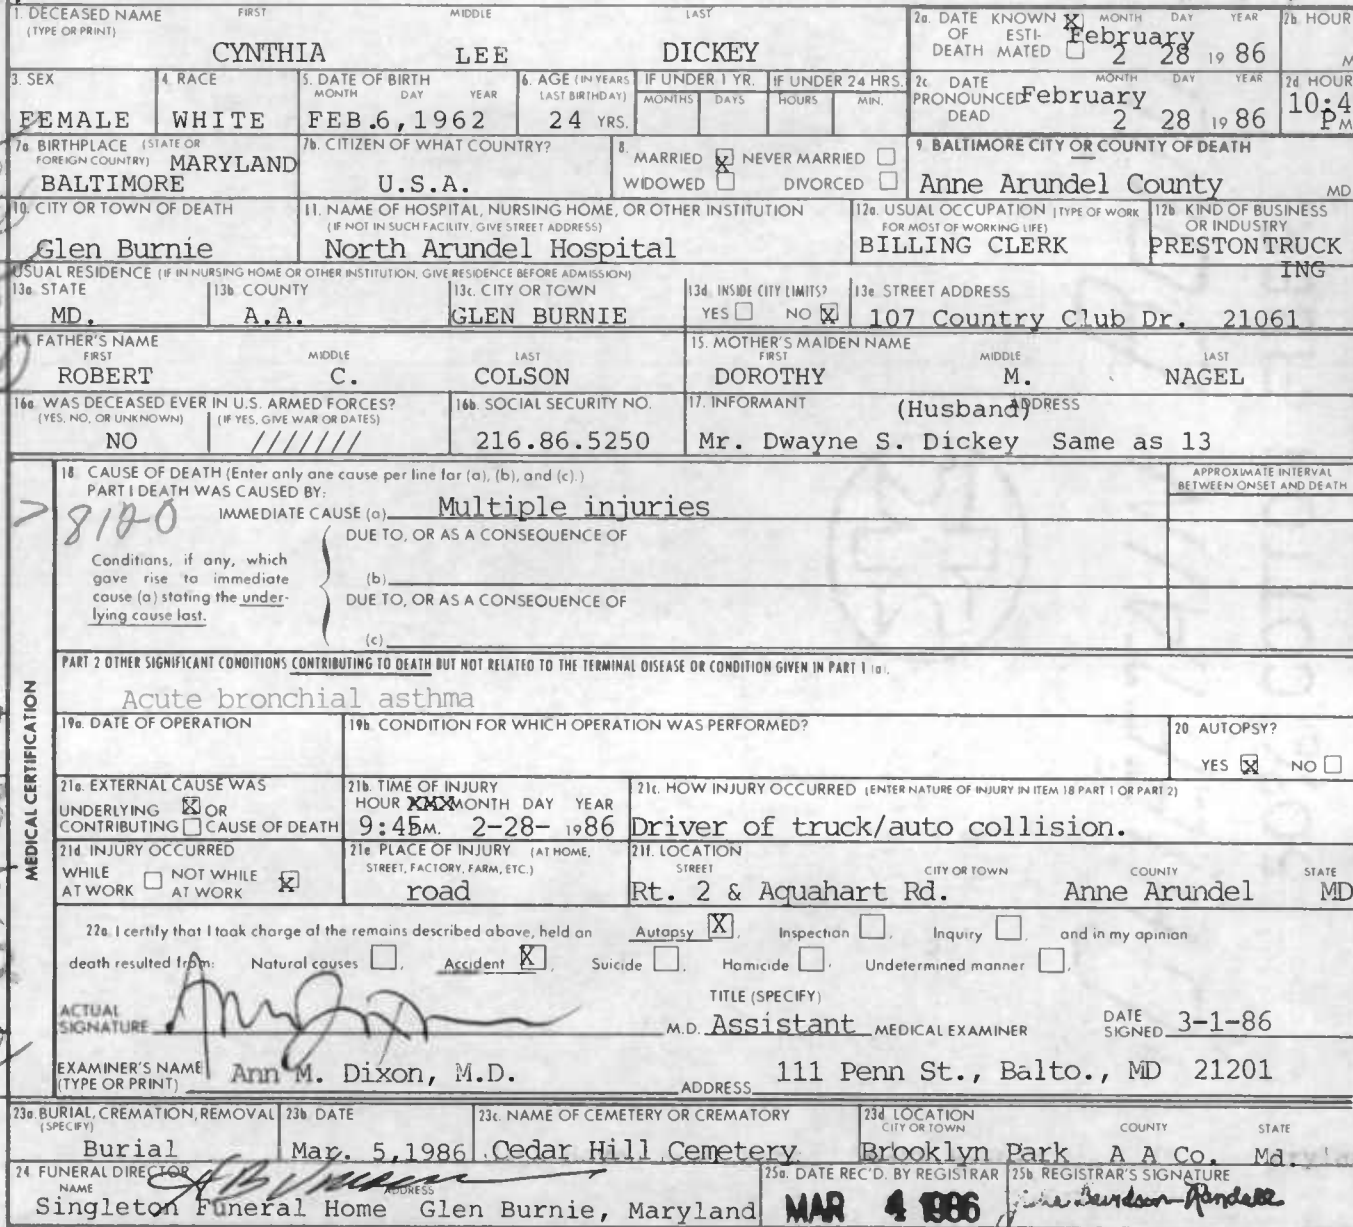 1. DECEASED NAME FIRST MIDDLE LAST
(TYPE OR PRINT)
CYNTHIA LEE DICKEY
2a. DATE KNOWN X MONTH DAY YEAR
OF ESTI- February
DEATH MATED 2 28 19 86
2b. HOUR
M
3. SEX
FEMALE
4. RACE
WHITE
5. DATE OF BIRTH
MONTH DAY YEAR
FEB.6,1962
6. AGE (IN YEARS
LAST BIRTHDAY)
24 YRS.
IF UNDER 1 YR.
MONTHS DAYS
IF UNDER 24 HRS.
HOURS MIN.
2c DATE MONTH DAY YEAR
PRONOUNCED February
DEAD 2 28 19 86
2d HOUR
10:4
PM
7a. BIRTHPLACE (STATE OR
FOREIGN COUNTRY) MARYLAND
BALTIMORE
7b. CITIZEN OF WHAT COUNTRY?
U.S.A.
8.
MARRIED X NEVER MARRIED
WIDOWED DIVORCED
9. BALTIMORE CITY OR COUNTY OF DEATH
Anne Arundel County MD
10. CITY OR TOWN OF DEATH
Glen Burnie
11. NAME OF HOSPITAL, NURSING HOME, OR OTHER INSTITUTION
(IF NOT IN SUCH FACILITY, GIVE STREET ADDRESS)
North Arundel Hospital
12a. USUAL OCCUPATION (TYPE OF WORK
FOR MOST OF WORKING LIFE)
BILLING CLERK
12b KIND OF BUSINESS
OR INDUSTRY
PRESTONTRUCK
ING
USUAL RESIDENCE (IF IN NURSING HOME OR OTHER INSTITUTION, GIVE RESIDENCE BEFORE ADMISSION)
13a STATE
MD.
13b COUNTY
A.A.
13c. CITY OR TOWN
GLEN BURNIE
13d. INSIDE CITY LIMITS?
YES NO X
13e STREET ADDRESS
107 Country Club Dr. 21061
14. FATHER'S NAME
FIRST MIDDLE LAST
ROBERT C. COLSON
15. MOTHER'S MAIDEN NAME
FIRST MIDDLE LAST
DOROTHY M. NAGEL
16a. WAS DECEASED EVER IN U.S. ARMED FORCES?
(YES, NO, OR UNKNOWN) (IF YES, GIVE WAR OR DATES)
NO ///////
16b. SOCIAL SECURITY NO.
216.86.5250
17. INFORMANT (Husband) ADDRESS
Mr. Dwayne S. Dickey Same as 13
MEDICAL CERTIFICATION
18 CAUSE OF DEATH (Enter only one cause per line for (a), (b), and (c).)
PART I DEATH WAS CAUSED BY:
APPROXIMATE INTERVAL
BETWEEN ONSET AND DEATH
> 8120
IMMEDIATE CAUSE (a) Multiple injuries
DUE TO, OR AS A CONSEQUENCE OF
Conditions, if any, which
gave rise to immediate
cause (a) stating the under-
lying cause last.
(b)
DUE TO, OR AS A CONSEQUENCE OF
(c)
PART 2 OTHER SIGNIFICANT CONDITIONS CONTRIBUTING TO DEATH BUT NOT RELATED TO THE TERMINAL DISEASE OR CONDITION GIVEN IN PART 1 (a).
Acute bronchial asthma
19a. DATE OF OPERATION
19b. CONDITION FOR WHICH OPERATION WAS PERFORMED?
20 AUTOPSY?
YES X NO
21a. EXTERNAL CAUSE WAS
UNDERLYING X OR
CONTRIBUTING CAUSE OF DEATH
21b. TIME OF INJURY
HOUR XXX MONTH DAY YEAR
9:45M. 2-28- 1986
21c. HOW INJURY OCCURRED (ENTER NATURE OF INJURY IN ITEM 18 PART 1 OR PART 2)
Driver of truck/auto collision.
21d INJURY OCCURRED
WHILE NOT WHILE
AT WORK AT WORK X
21e PLACE OF INJURY (AT HOME,
STREET, FACTORY, FARM, ETC.)
road
21f. LOCATION
STREET CITY OR TOWN COUNTY STATE
Rt. 2 & Aquahart Rd. Anne Arundel MD
22a I certify that I took charge of the remains described above, held an Autopsy X, Inspection, Inquiry, and in my opinion
death resulted from: Natural causes, Accident X, Suicide, Homicide, Undetermined manner,
ACTUAL
SIGNATURE
M.D.
TITLE (SPECIFY)
Assistant MEDICAL EXAMINER
DATE
SIGNED 3-1-86
EXAMINER'S NAME
(TYPE OR PRINT) Ann M. Dixon, M.D.
ADDRESS 111 Penn St., Balto., MD 21201
23a. BURIAL, CREMATION, REMOVAL
(SPECIFY)
Burial
23b DATE
Mar. 5,1986
23c. NAME OF CEMETERY OR CREMATORY
Cedar Hill Cemetery
23d LOCATION
CITY OR TOWN COUNTY STATE
Brooklyn Park A A Co. Md.
24 FUNERAL DIRECTOR
NAME ADDRESS
Singleton Funeral Home Glen Burnie, Maryland
25a. DATE REC'D. BY REGISTRAR
MAR 4 1986
25b REGISTRAR'S SIGNATURE
Davidson-Randall